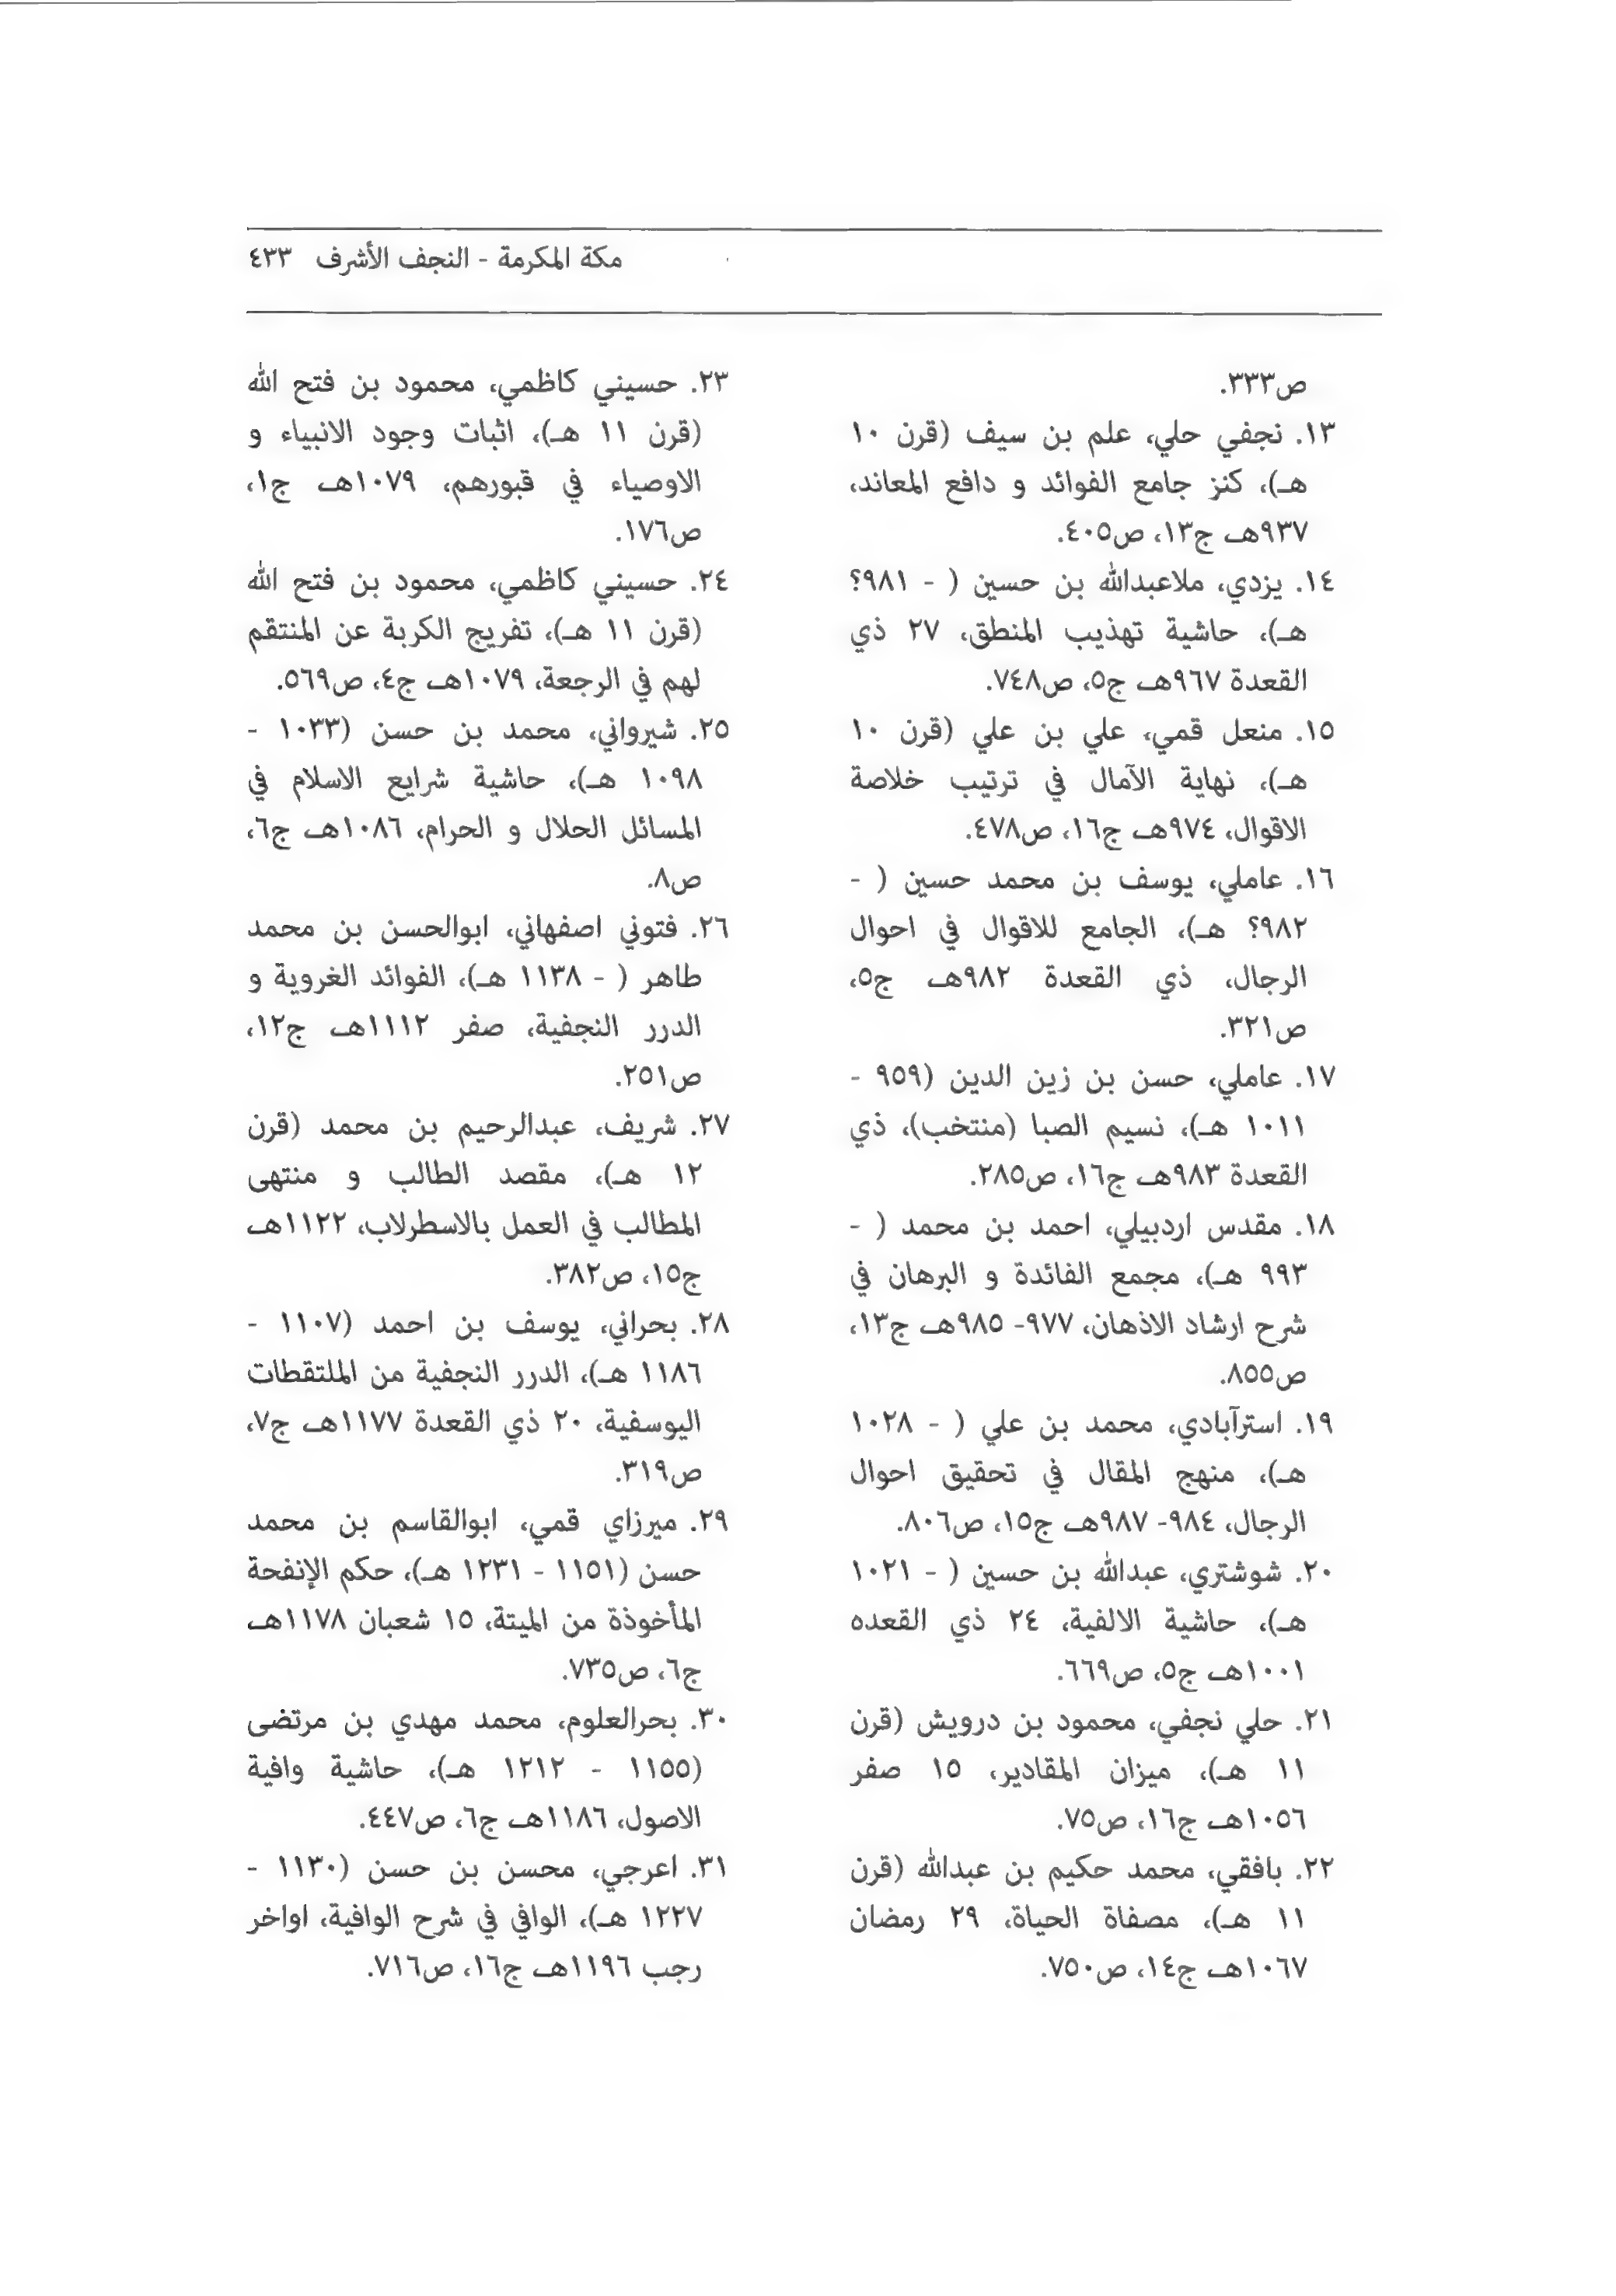 مكة المكرمة - النجف الأشرف ٤٣٣
ص٣٣٣.
١٣. نجفي حلي، علم بن سيف (قرن ١٠
هـ)، كنز جامع الفوائد و دافع المعاند،
٩٣٧هـ ج١٣، ص٤٠٥.
١٤. يزدي، ملاعبدالله بن حسين ( - ٩٨١؟
هـ)، حاشية تهذيب المنطق، ٢٧ ذي
القعدة ٩٦٧هـ ج٥، ص٧٤٨.
١٥. منعل قمي، علي بن علي (قرن ١٠
هـ)، نهاية الآمال في ترتيب خلاصة
الاقوال، ٩٧٤هـ ج١٦، ص٤٧٨.
١٦. عاملي، يوسف بن محمد حسين ( -
٩٨٢؟ هـ)، الجامع للاقوال في احوال
الرجال، ذي القعدة ٩٨٢هـ ج٥،
ص٣٢١.
١٧. عاملي، حسن بن زين الدين (٩٥٩ -
١٠١١ هـ)، نسيم الصبا (منتخب)، ذي
القعدة ٩٨٣هـ ج١٦، ص٢٨٥.
١٨. مقدس اردبيلي، احمد بن محمد ( -
٩٩٣ هـ)، مجمع الفائدة و البرهان في
شرح ارشاد الاذهان، ٩٧٧- ٩٨٥هـ ج١٣،
ص٨٥٥.
١٩. استرآبادي، محمد بن علي ( - ١٠٢٨
هـ)، منهج المقال في تحقيق احوال
الرجال، ٩٨٤- ٩٨٧هـ ج١٥، ص٨٠٦.
٢٠. شوشتري، عبدالله بن حسين ( - ١٠٢١
هـ)، حاشية الالفية، ٢٤ ذي القعده
١٠٠١هـ ج٥، ص٦٦٩.
٢١. حلي نجفي، محمود بن درويش (قرن
١١ هـ)، ميزان المقادير، ١٥ صفر
١٠٥٦هـ ج١٦، ص٧٥.
٢٢. بافقي، محمد حكيم بن عبدالله (قرن
١١ هـ)، مصفاة الحياة، ٢٩ رمضان
١٠٦٧هـ ج١٤، ص٧٥٠.
٢٣. حسيني كاظمي، محمود بن فتح الله
(قرن ١١ هـ)، اثبات وجود الانبياء و
الاوصياء في قبورهم، ١٠٧٩هـ ج١،
ص١٧٦.
٢٤. حسيني كاظمي، محمود بن فتح الله
(قرن ١١ هـ)، تفريج الكربة عن المنتقم
لهم في الرجعة، ١٠٧٩هـ ج٤، ص٥٦٩.
٢٥. شيرواني، محمد بن حسن (١٠٣٣ -
١٠٩٨ هـ)، حاشية شرايع الاسلام في
المسائل الحلال و الحرام، ١٠٨٦هـ ج٦،
ص٨.
٢٦. فتوني اصفهاني، ابوالحسن بن محمد
طاهر ( - ١١٣٨ هـ)، الفوائد الغروية و
الدرر النجفية، صفر ١١١٢هـ ج١٢،
ص٢٥١.
٢٧. شريف، عبدالرحيم بن محمد (قرن
١٢ هـ)، مقصد الطالب و منتهى
المطالب في العمل بالاسطرلاب، ١١٢٢هـ
ج١٥، ص٣٨٢.
٢٨. بحراني، يوسف بن احمد (١١٠٧ -
١١٨٦ هـ)، الدرر النجفية من الملتقطات
اليوسفية، ٢٠ ذي القعدة ١١٧٧هـ ج٧،
ص٣١٩.
٢٩. ميرزاي قمي، ابوالقاسم بن محمد
حسن (١١٥١ - ١٢٣١ هـ)، حكم الإنفحة
المأخوذة من الميتة، ١٥ شعبان ١١٧٨هـ
ج٦، ص٧٣٥.
٣٠. بحرالعلوم، محمد مهدي بن مرتضى
(١١٥٥ - ١٢١٢ هـ)، حاشية وافية
الاصول، ١١٨٦هـ ج٦، ص٤٤٧.
٣١. اعرجي، محسن بن حسن (١١٣٠ -
١٢٢٧ هـ)، الوافي في شرح الوافية، اواخر
رجب ١١٩٦هـ ج١٦، ص٧١٦.